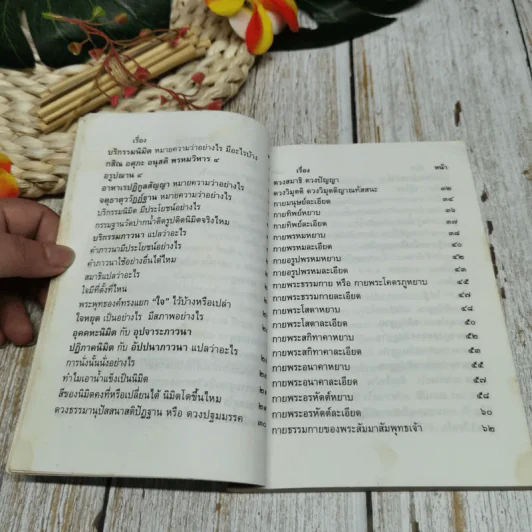 เรื่อง
บริกรรมนิมิต หมายความว่าอย่างไร มีอะไรบ้าง
กสิณ อศุภะ อนุสติ พรหมวิหาร ๔
อรูปฌาน ๔
อาหาเรปฏิกูลสัญญา หมายความว่าอย่างไร
จตุธาตุววัฏฐาน หมายความว่าอย่างไร
บริกรรมนิมิต มีประโยชน์อย่างไร
กรรมฐานวัดปากน้ำติดรูปติดนิมิตจริงไหม
บริกรรมภาวนา แปลว่าอะไร
คำภาวนามีประโยชน์อย่างไร
คำภาวนาใช้อย่างอื่นได้ไหม
สมาธิแปลว่าอะไร
ใจมีที่ตั้งที่ไหน
พระพุทธองค์ทรงแยก "ใจ" ไว้บ้างหรือเปล่า
ใจหยุด เป็นอย่างไร มีสภาพอย่างไร
อุคคหะนิมิต กับ อุปจาระภาวนา
ปฏิภาคนิมิต กับ อัปปนาภาวนา แปลว่าอะไร
การนั่งนั้นนั่งอย่างไร
ทำไมเอาน้ำแข็งเป็นนิมิต
สีของนิมิตคงที่หรือเปลี่ยนได้ นิมิตโตขึ้นไหม
ดวงธรรมานุปัสสนาสติปัฏฐาน หรือ ดวงปฐมมรรค ๓๐
เรื่อง หน้า
ดวงสมาธิ ดวงปัญญา
ดวงวิมุตติ ดวงวิมุตติญาณทัสสนะ ๓๒
กายมนุษย์ละเอียด ๓๔
กายทิพย์หยาบ ๓๖
กายทิพย์ละเอียด ๓๗
กายพรหมหยาบ ๓๘
กายพรหมละเอียด ๔๐
กายอรูปพรหมหยาบ ๔๒
กายอรูปพรหมละเอียด ๔๓
กายพระธรรมกาย หรือ กายพระโคตรภูหยาบ ๔๕
กายพระธรรมกายละเอียด ๔๗
กายพระโสดาหยาบ ๔๘
กายพระโสดาละเอียด ๕๐
กายพระสกิทาคาหยาบ ๕๒
กายพระสกิทาคาละเอียด ๕๓
กายพระอนาคาหยาบ ๕๕
กายพระอนาคาละเอียด ๕๗
กายพระอรหัตต์หยาบ ๕๘
กายพระอรหัตต์ละเอียด ๖๐
กายธรรมกายของพระสัมมาสัมพุทธเจ้า ๖๒